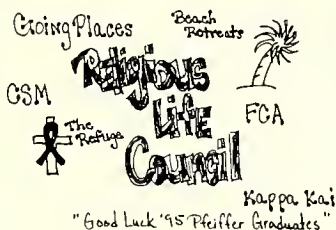 Going Places
Beach
Retreats
CSM
Religious
Life
Council
FCA
The
Refuge
Kappa Kai
"Good Luck '95 Pfeiffer Graduates"